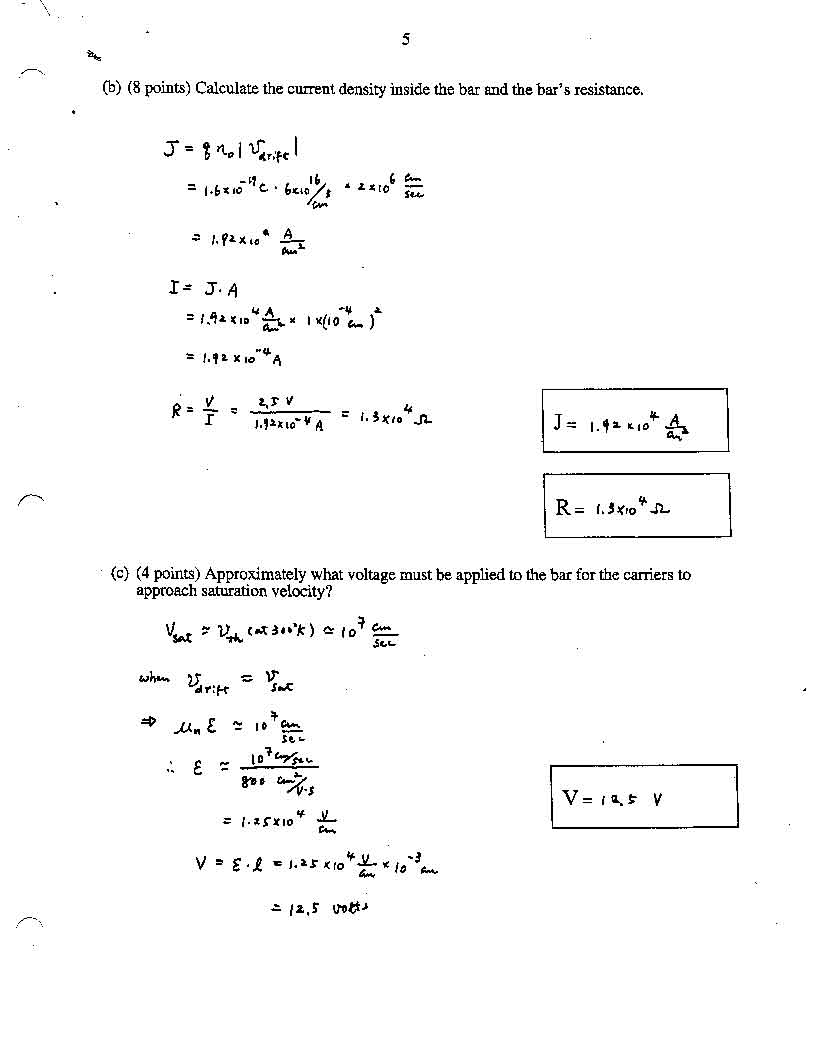 5
(b) (8 points) Calculate the current density inside the bar and the bar's resistance.
J = q n₀ |v_drift|
= 1.6×10⁻¹⁹ C · 6×10¹⁶/cm³ × 2×10⁶ cm/sec
= 1.92×10⁴ A/cm²
I = J·A
= 1.92×10⁴ A/cm² × 1×(10⁻⁴ cm)²
= 1.92×10⁻⁴ A
R = V/I = 2.5 V / 1.92×10⁻⁴ A = 1.3×10⁴ Ω
J = 1.92×10⁴ A/cm²
R = 1.3×10⁴ Ω
(c) (4 points) Approximately what voltage must be applied to the bar for the carriers to
approach saturation velocity?
V_sat ≃ v_th (at 300°K) ≃ 10⁷ cm/sec
when v_drift = v_sat
⇒ μₙ ℰ ≃ 10⁷ cm/sec
∴ ℰ ≃ 10⁷ cm/sec / 800 cm²/V·s
= 1.25×10⁴ V/cm
V = 12.5 V
V = ℰ·ℓ = 1.25×10⁴ V/cm × 10⁻³ cm
= 12.5 volts